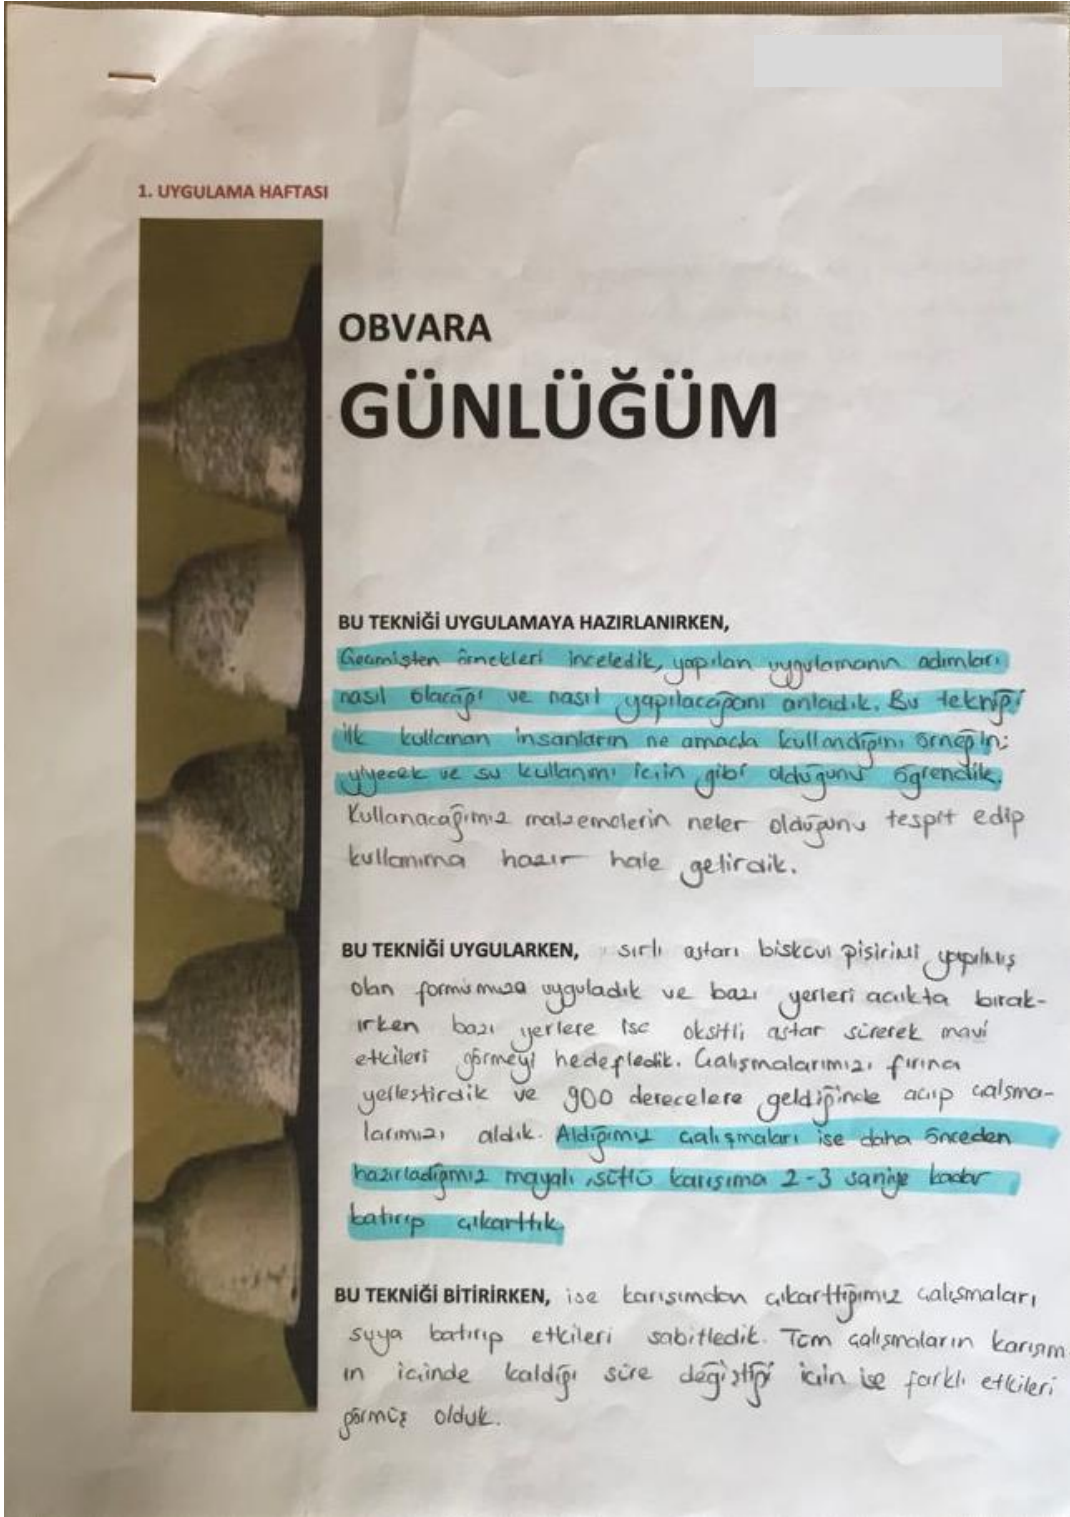 1. UYGULAMA HAFTASI
OBVARA
GÜNLÜĞÜM
BU TEKNİĞİ UYGULAMAYA HAZIRLANIRKEN,
Geçmişten örnekleri inceledik, yapılan uygulamanın adımları
nasıl olacağı ve nasıl yapılacağanı anladık. Bu tekniği
ilk kullanan insanların ne amaçla kullandığını örneğin;
yiyecek ve su kullanımı için gibi olduğunu öğrendik.
Kullanacağımız malzemelerin neler olduğunu tespit edip
kullanıma hazır hale getirdik.
BU TEKNİĞİ UYGULARKEN, sırlı astarı bisküvi pişirimi yapılmış
olan formumuza uyguladık ve bazı yerleri açıkta bırak-
ırken bazı yerlere ise oksitli astar sürerek mavi
etkileri görmeyi hedefledik. Çalışmalarımızı fırına
yerleştirdik ve 900 derecelere geldiğinde açıp çalşma-
larımızı aldık. Aldığımız çalışmaları ise daha önceden
hazırladığmız mayalı, sütlü karışıma 2-3 saniye kadar
batırıp çıkarttık.
BU TEKNİĞİ BİTİRİRKEN, ise karışımdan çıkarttığımız çalışmaları
suya batırıp etkileri sabitledik. Tüm çalışmaların karışım
ın içinde kaldığı süre değiştiği için ise farklı etkileri
görmüş olduk.